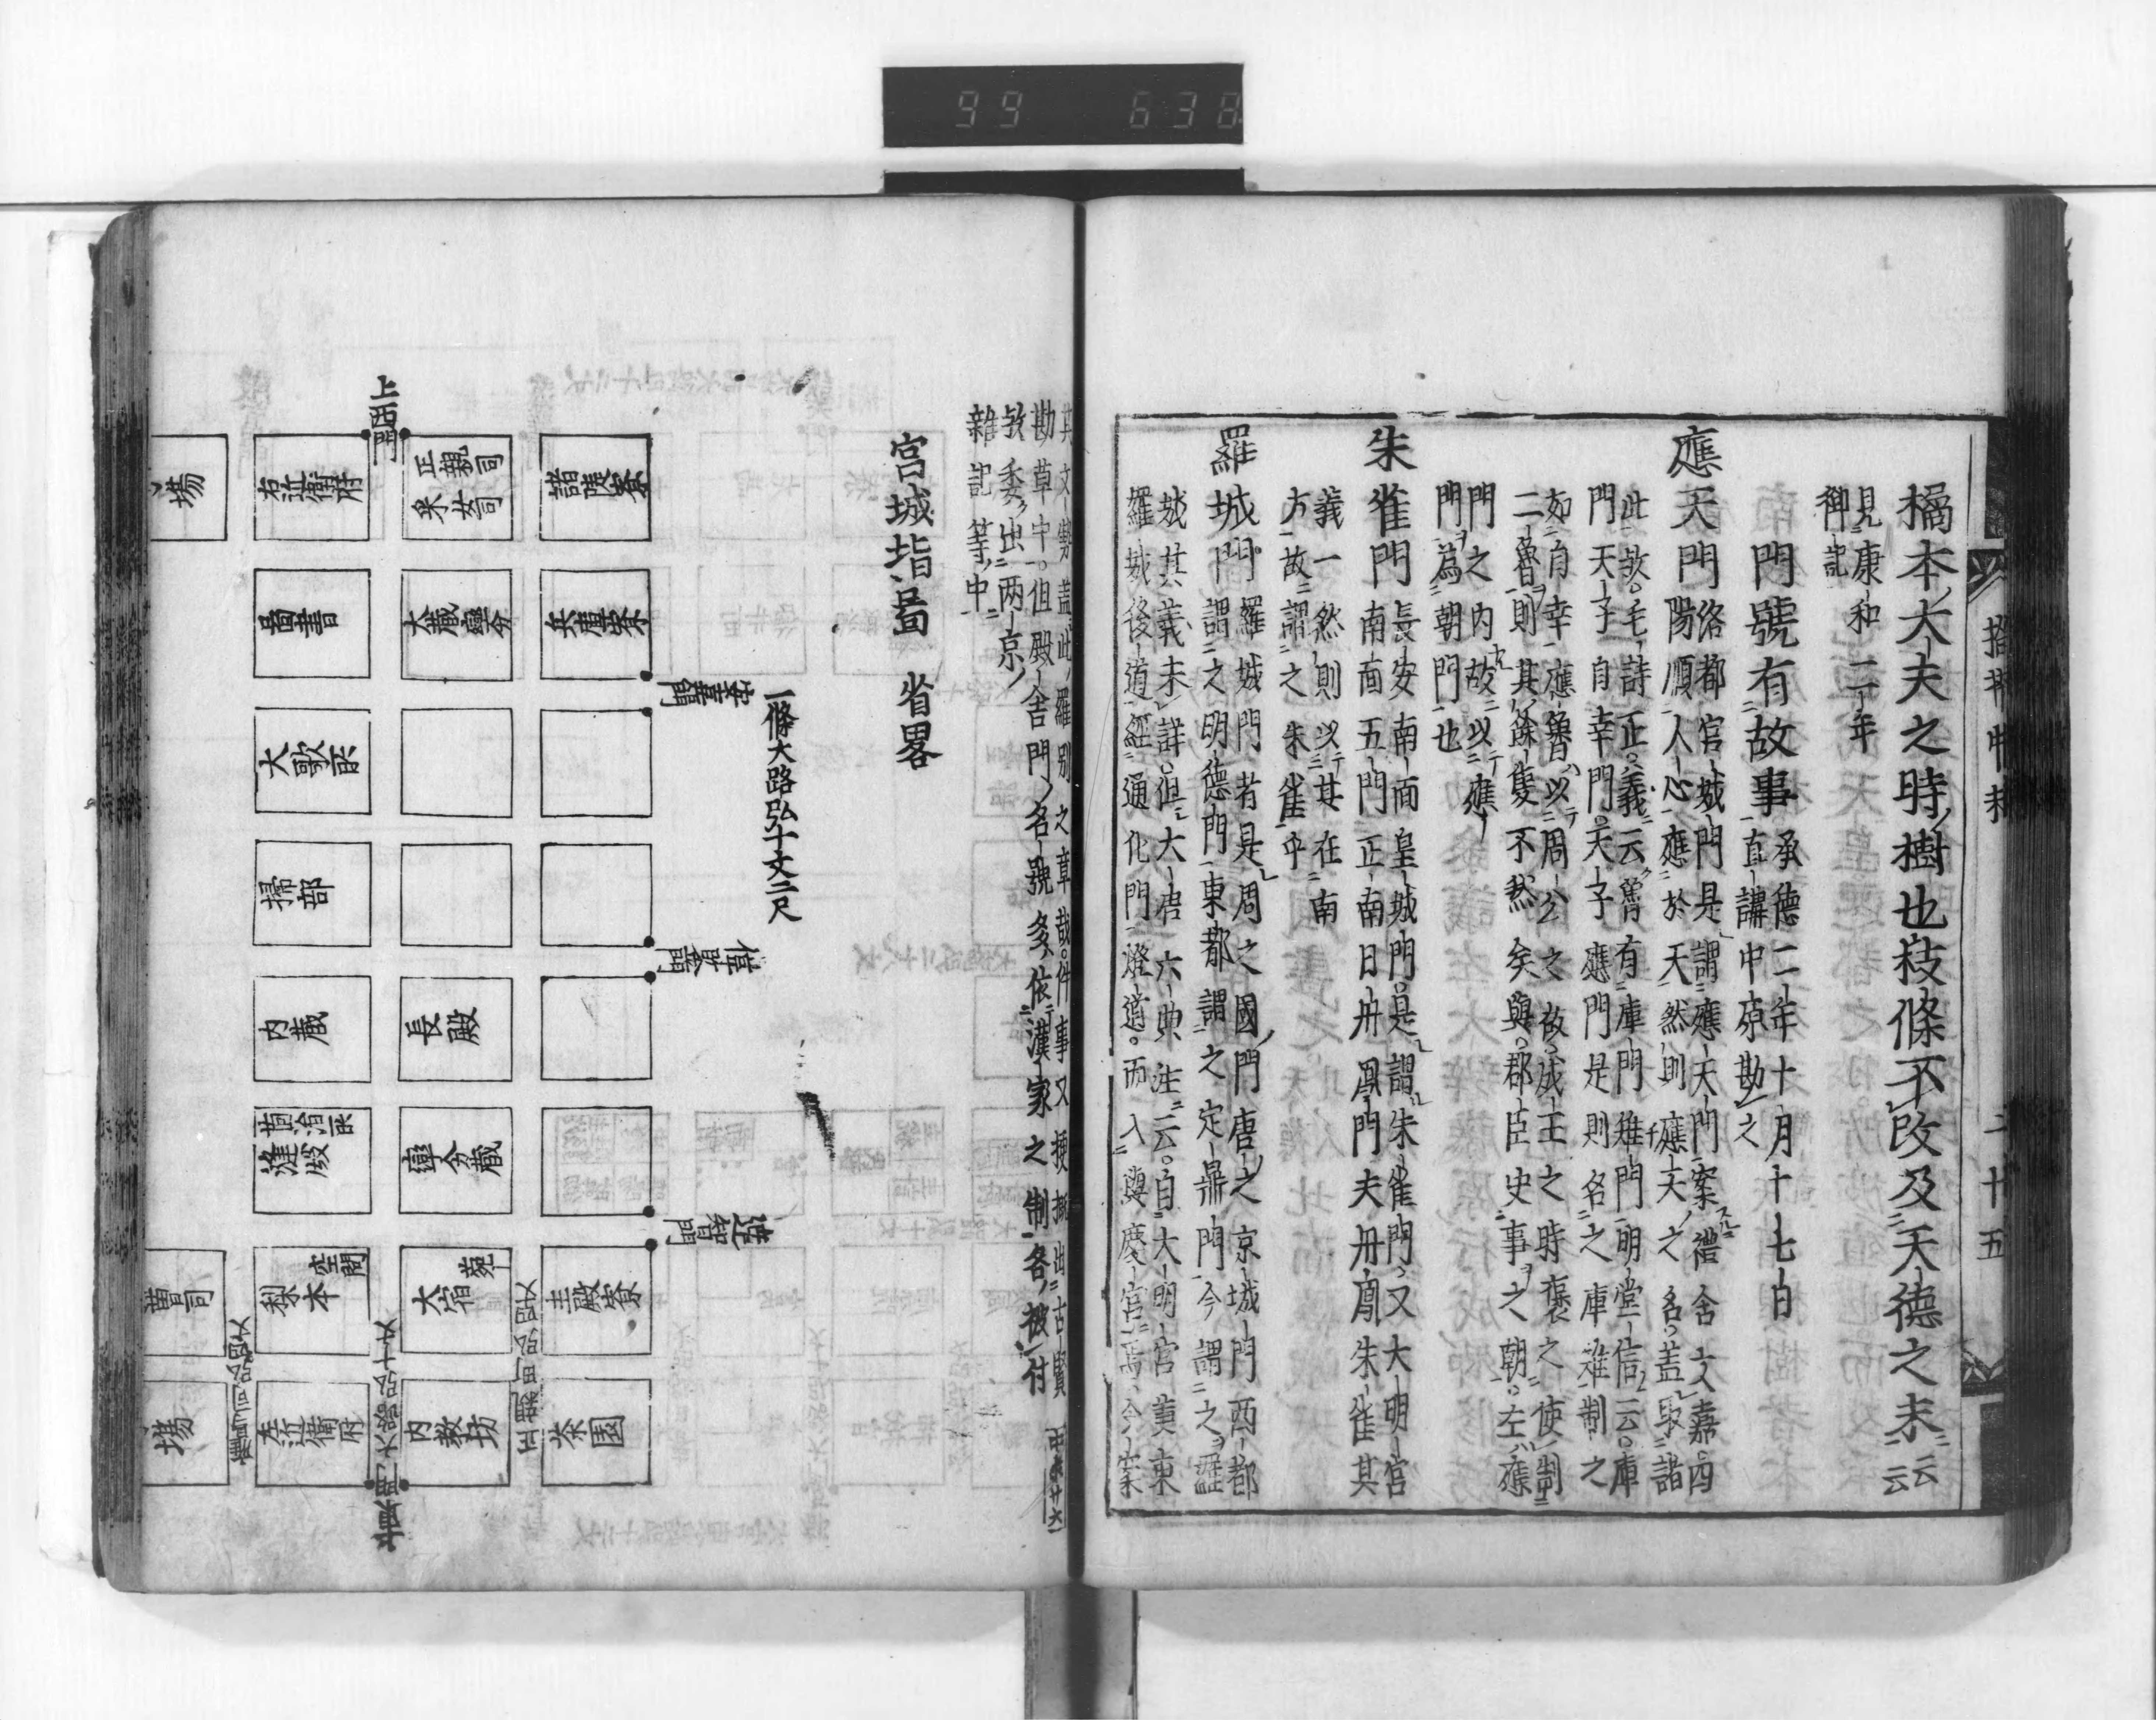 橘本大夫之時樹也枝條不改及天德之末云云
見康和二年
御記
門號有故事承德二年十月十七日
直講中原勘之
應天門洛都官城門是謂應天門案禮含文嘉內
陽順人心應於天然則應天之名蓋取諸
此欤毛詩正義云魯有庫門雉門明堂信云庫
門天子自幸門天子應門是則名之庫雉制之
如自幸應魯以周公之故成王之時褒之使制
二魯則其餘隻不然矣與郡臣史事之朝左應
門之內故以應
門為朝門也
朱雀門長安南面皇城門是謂朱雀門又大明宮
南面五門正南日丹鳳門夫丹鳳朱雀其
義一然則以其在南
方故謂之朱雀乎
羅城門羅城門者是周之國門唐之京城門西都
謂之明德門東都謂之定鼎門今謂之羅
城其義未詳但大唐六典注云自大明宮萸東
羅城後道經通化門磴道而入興慶宮焉今案
拾芥中末 二十五
其文勢蓋此羅別之章哉件事又挍擬出古賢
勘草中但殿舍門名號多依漢家之制各被付
欤委出兩京
雜記等中
中末廿六
宮城指圖 省畧
一條大路弘十丈二尺
安嘉門
偉鑒門
達智門
上西門
上東門
大路弘十丈
諸陵寮
兵庫寮
主殿寮
茶園
正親司
采女司
大藏
長殿
率分藏
大宿
內教坊
右近衛府
圖書
大歌所
掃部
內藏
縫殿
梨本
空閑
左近衛府